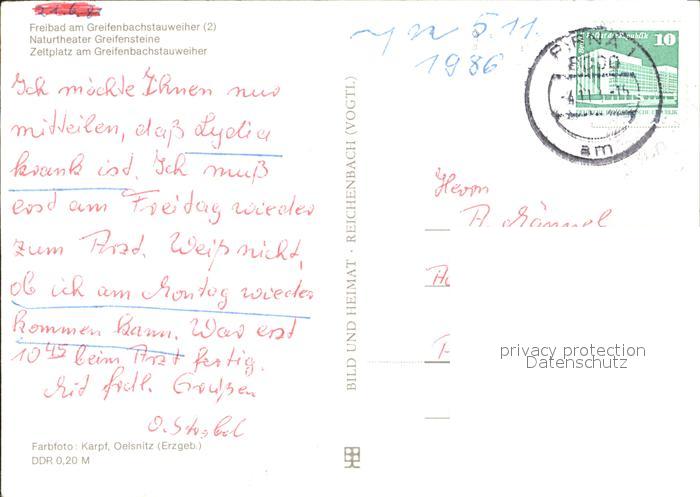 Freibad am Greifenbachstauweiher (2)
Naturtheater Greifensteine
Zeltplatz am Greifenbachstauweiher
Ich möchte Ihnen nur
mitteilen, daß Lydia
krank ist. Ich muß
erst am Freitag wieder
zum Arzt. Weiß nicht,
ob ich am Montag wieder
kommen kann. War erst
10 45 beim Arzt fertig.
Mit frdl. Grüßen
Farbfoto: Karpf, Oelsnitz (Erzgeb.)
DDR 0,20 M
BILD UND HEIMAT · REICHENBACH (VOGTL)
5.11.
1986
10
PIRNA 1
8300
am
Herrn
privacy protection
Datenschutz